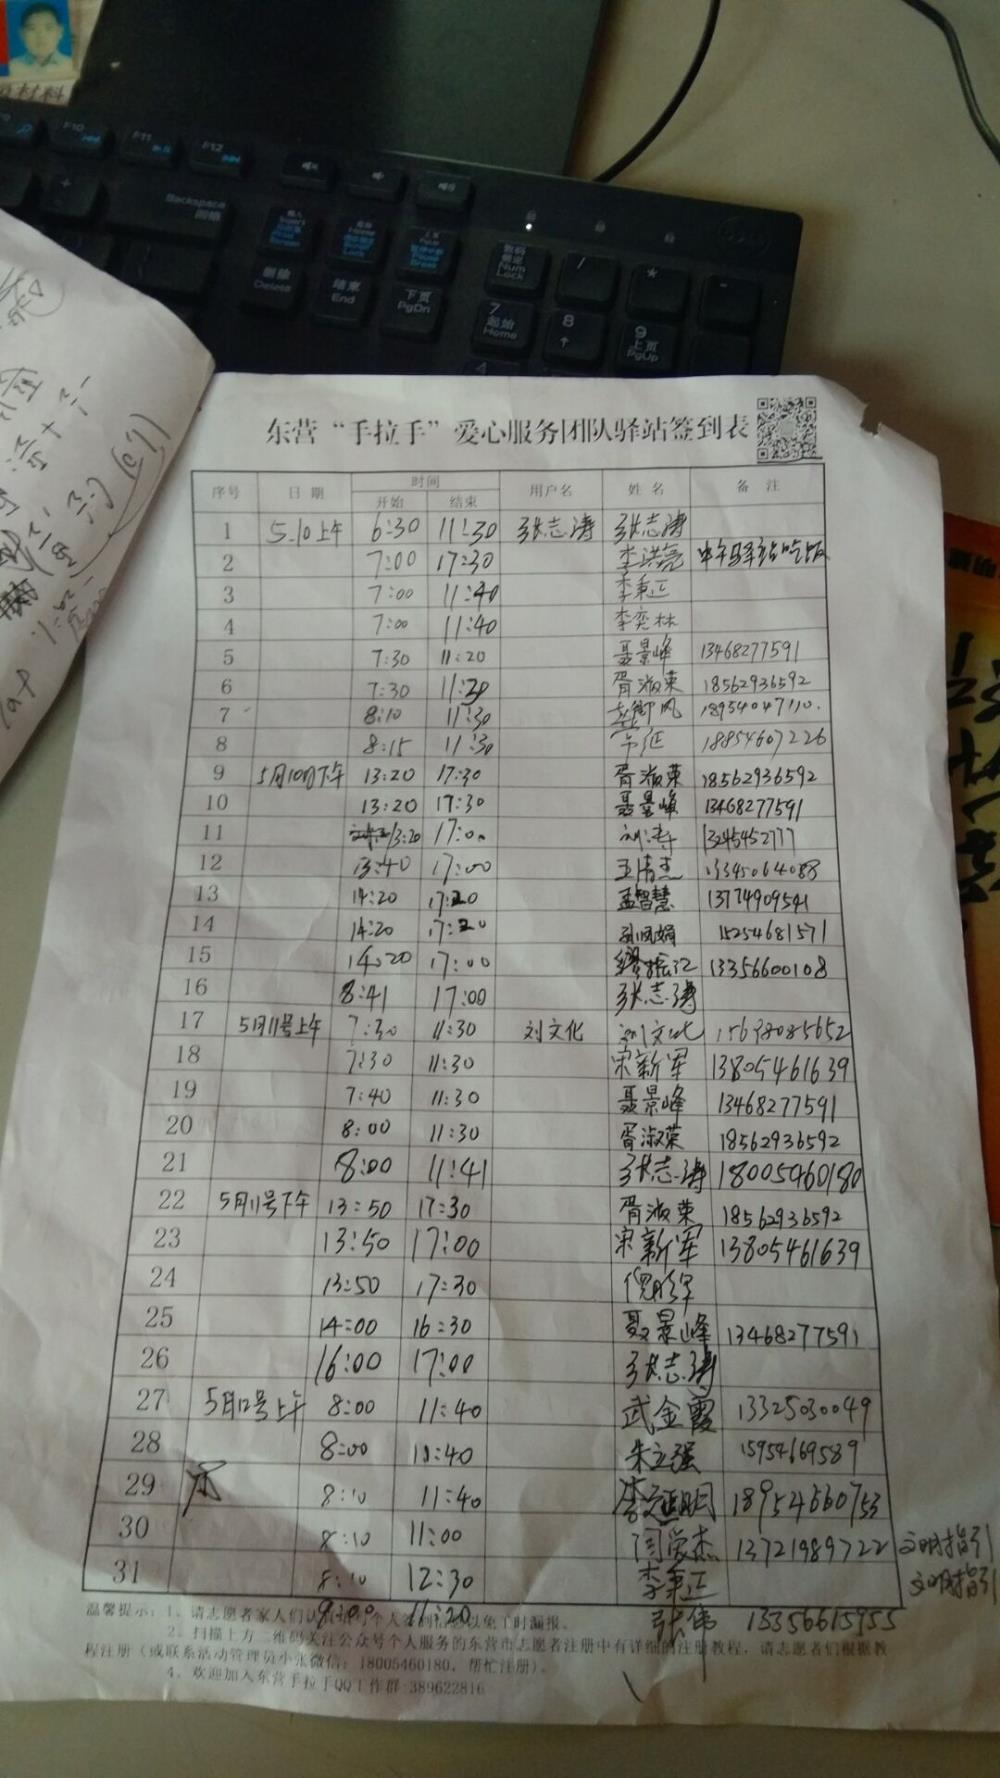 材料
F10
F11
F12
Backspace
回格
Insert
Home
PgUp
删除
Delete
结束
End
下页
PgDn
数码
锁定
Num
Lock
/
*
-
7
起始
Home
8
9
上页
PgUp
4
东营“手拉手”爱心服务团队驿站签到表
序号 日 期 时间 用户名 姓 名 备 注
开始 结束
1 5.10上午 6:30 11:30 张志涛 张志涛
2 7:00 17:30 李洪亮 中午驿站吃饭
3 7:00 11:40 李秉正
4 7:00 11:40 李奕林
5 7:30 11:20 聂景峰 13468277591
6 7:30 11:30 胥淑荣 18562936592
7 8:10 11:30 18954047110.
8 8:15 11:30 18854607226
9 5月10日下午 13:20 17:30 胥淑荣 18562936592
10 13:20 17:30 聂景峰 13468277591
11 13:20 17:00 刘涛 13245452777
12 13:40 17:00 王清杰 13345064088
13 14:20 17:20 孟智慧 13774909541
14 14:20 17:20 孙凤娟 15254681571
15 14:20 17:00 缪振江 13356600108
16 8:41 17:00 张志涛
17 5月11号上午 7:30 11:30 刘文化 刘文化 15698085652
18 7:30 11:30 宋新军 13805461639
19 7:40 11:30 聂景峰 13468277591
20 8:00 11:30 胥淑荣 18562936592
21 8:00 11:41 张志涛 18005460180
22 5月11号下午 13:50 17:30 胥淑荣 18562936592
23 13:50 17:00 宋新军 13805461639
24 13:50 17:30
25 14:00 16:30 聂景峰 13468277591
26 16:00 17:00 张志涛
27 5月12号上午 8:00 11:40 武金霞 13325030049
28 8:00 11:40 朱立强 15954669589
29 8:10 11:40 18954660753
30 8:10 11:00 闫爱杰 13721989722 文明指引
31 8:10 12:30 李秉正 文明指引
9:00 11:20 张伟 13356615955
温馨提示：1、请志愿者家人们认真填写个人签到信息以免工时漏报。
2、扫描上方二维码关注公众号个人服务的东营市志愿者注册中有详细的注册教程，请志愿者们根据教
程注册（或联系活动管理员小张微信：18005460180，帮忙注册）。
4、欢迎加入东营手拉手QQ工作群:389622816